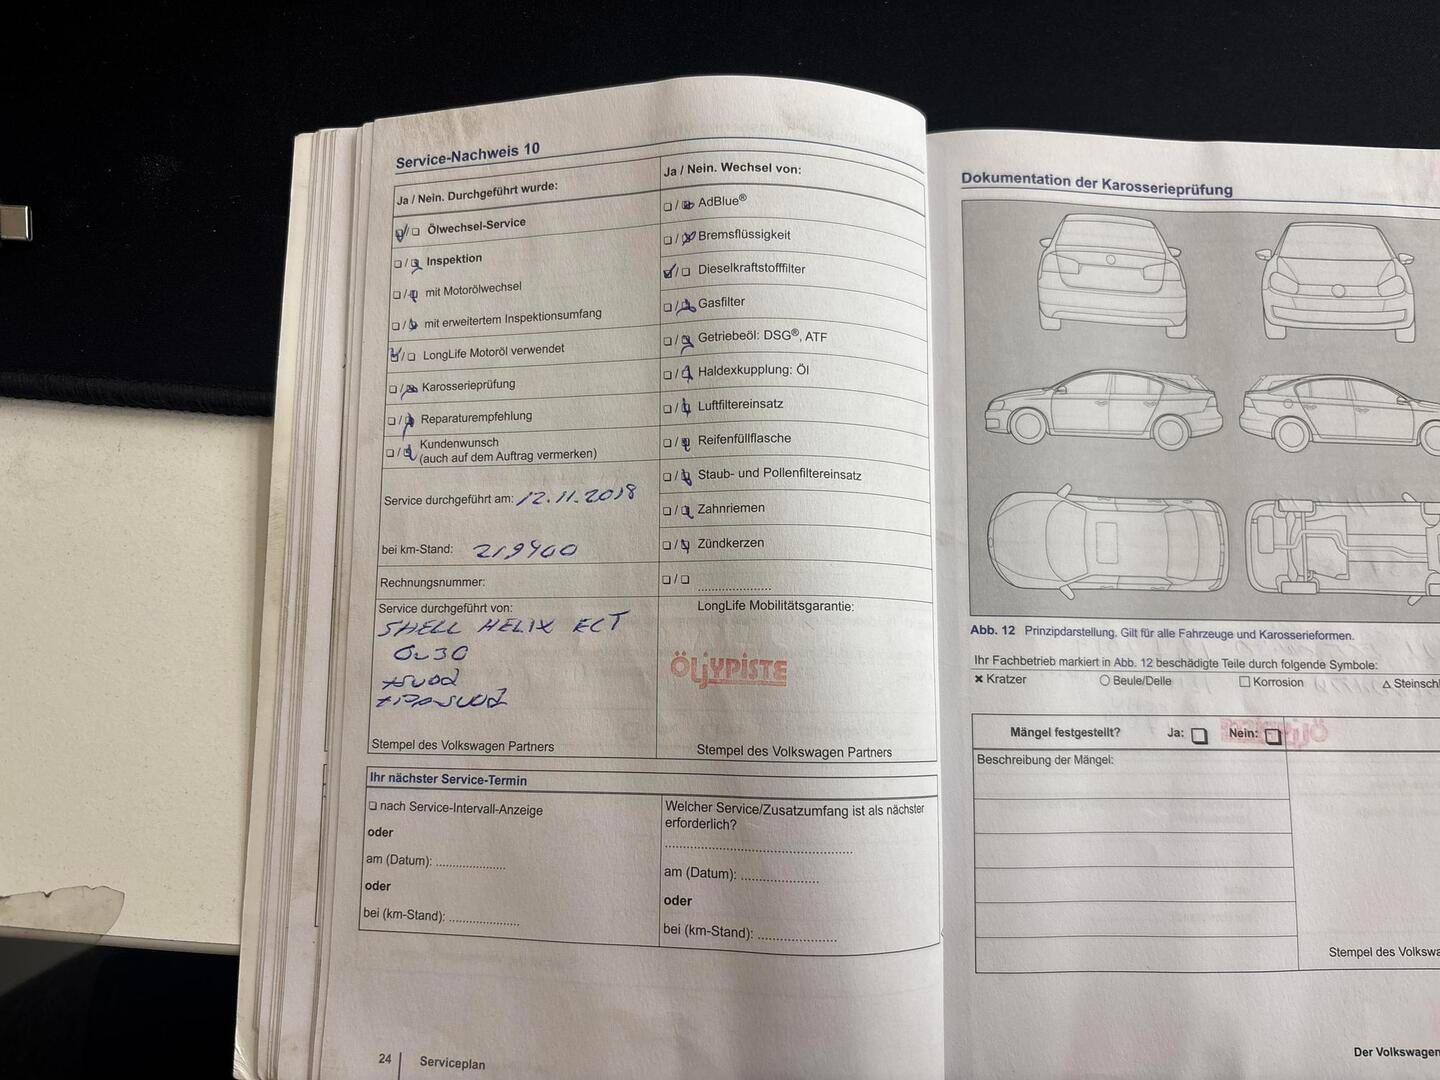 Service-Nachweis 10
Ja / Nein. Durchgeführt wurde:
Ölwechsel-Service
Inspektion
mit Motorölwechsel
mit erweitertem Inspektionsumfang
LongLife Motoröl verwendet
Karosserieprüfung
Reparaturempfehlung
Kundenwunsch
(auch auf dem Auftrag vermerken)
Service durchgeführt am: 12.11.2018
bei km-Stand: 219400
Rechnungsnummer:
Service durchgeführt von:
SHELL HELIX ECT
Stempel des Volkswagen Partners
Ja / Nein. Wechsel von:
AdBlue®
Bremsflüssigkeit
Dieselkraftstofffilter
Gasfilter
Getriebeöl: DSG®, ATF
Haldexkupplung: Öl
Luftfiltereinsatz
Reifenfüllflasche
Staub- und Pollenfiltereinsatz
Zahnriemen
Zündkerzen
LongLife Mobilitätsgarantie:
ÖljYPISTE
Stempel des Volkswagen Partners
Ihr nächster Service-Termin
nach Service-Intervall-Anzeige
oder
am (Datum):
oder
bei (km-Stand):
Welcher Service/Zusatzumfang ist als nächster
erforderlich?
am (Datum):
oder
bei (km-Stand):
24 Serviceplan
Dokumentation der Karosserieprüfung
Abb. 12 Prinzipdarstellung. Gilt für alle Fahrzeuge und Karosserieformen.
Ihr Fachbetrieb markiert in Abb. 12 beschädigte Teile durch folgende Symbole:
Kratzer Beule/Delle Korrosion Steinschl
Mängel festgestellt? Ja: Nein:
Beschreibung der Mängel:
Stempel des Volkswa
Der Volkswagen